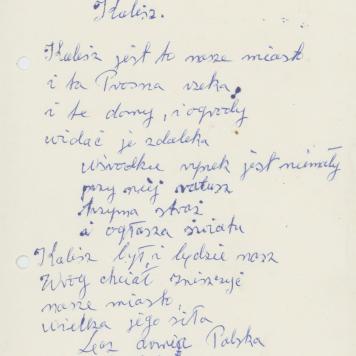 Kalisz.
Kalisz jest to nasze miasto
i ta Prosna rzeka,
i te domy, i ogrody
widać je zdaleka
wśrodku rynek jest niemały
przy niej ratusz
trzyma straż
a ogłasza światu
Kalisz był, i będzie nasz
Wróg chciał
nasze miasto,
wielka jego siła
Lecz Polska